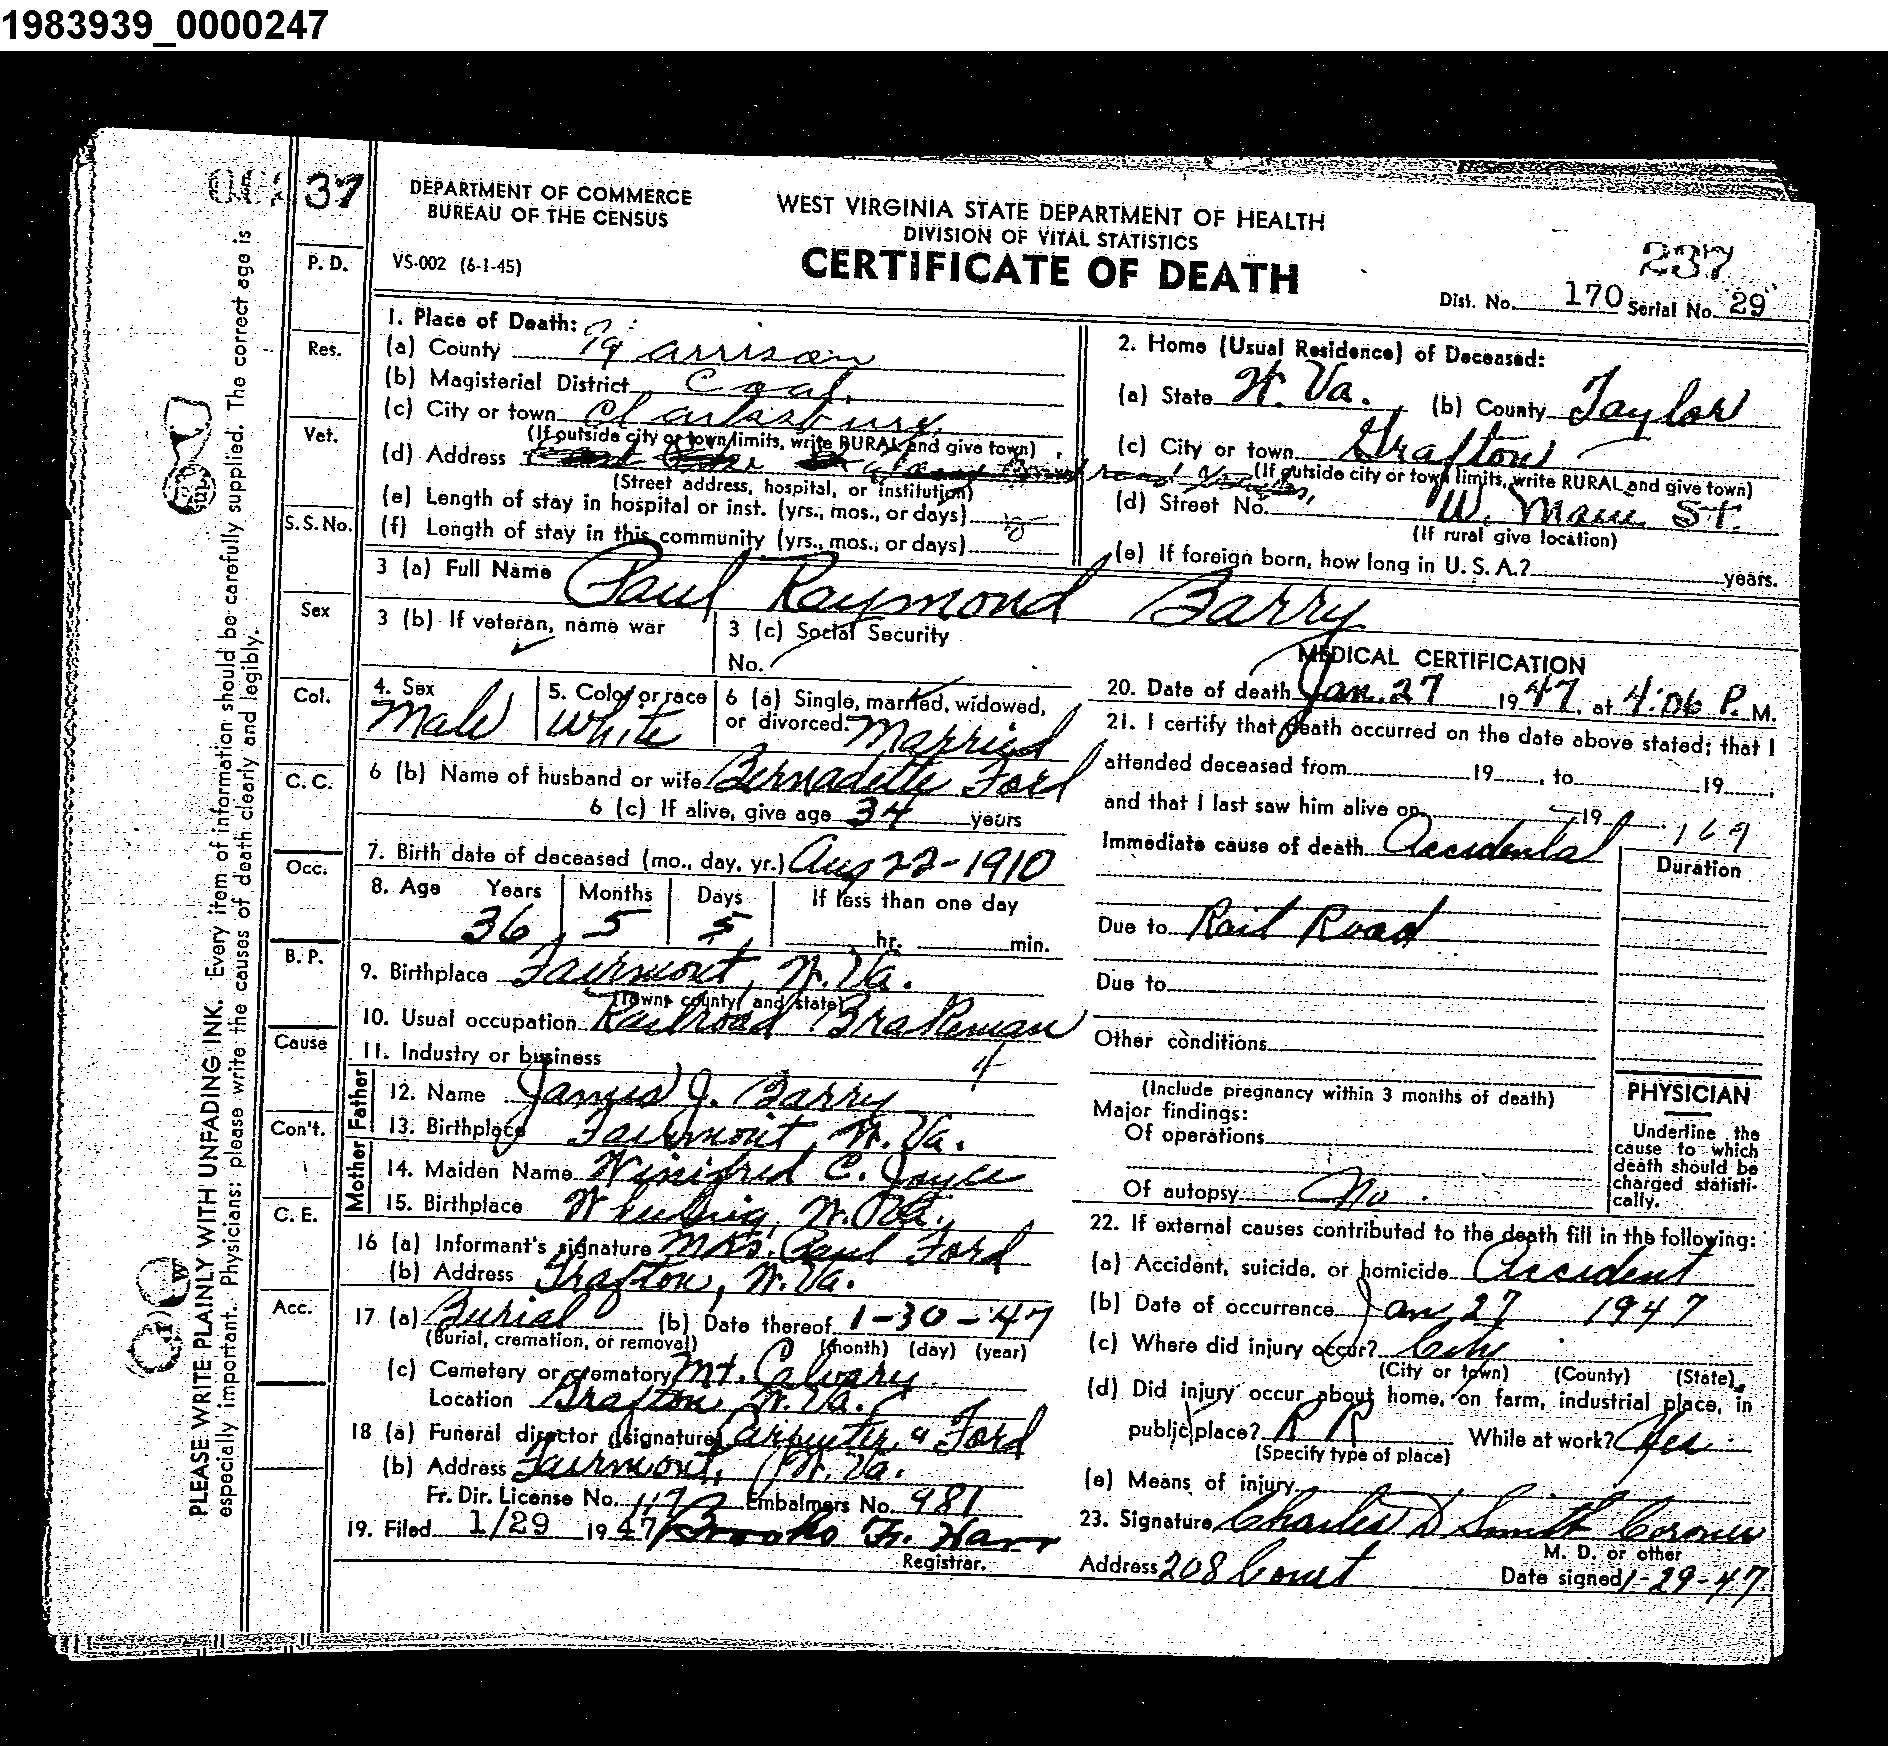 1983939_0000247
37
DEPARTMENT OF COMMERCE
BUREAU OF THE CENSUS
VS-002 (6-1-45)
WEST VIRGINIA STATE DEPARTMENT OF HEALTH
DIVISION OF VITAL STATISTICS
CERTIFICATE OF DEATH
237
Dist. No. 170 Serial No. "29"
PLEASE WRITE PLAINLY WITH UNFADING INK. Every item of information should be carefully supplied. The correct age is
especially important. Physicians: please write the causes of death clearly and legibly.
P. D.
Res.
Vet.
S. S. No.
Sex
Col.
C. C.
Occ.
B. P.
Cause
Con't.
C. E.
Acc.
1. Place of Death:
(a) County Harrison
(b) Magisterial District Coal
(c) City or town Clarksburg
(If outside city or town limits, write RURAL and give town)
(d) Address
(Street address, hospital, or institution)
(e) Length of stay in hospital or inst. (yrs., mos., or days)
(f) Length of stay in this community (yrs., mos., or days)
2. Home (Usual Residence) of Deceased:
(a) State W. Va. (b) County Taylor
(c) City or town Grafton
(If outside city or town limits, write RURAL and give town)
(d) Street No. W. Main St.
(If rural give location)
(e) If foreign born, how long in U. S. A.? years.
3 (a) Full Name Paul Raymond Barry
3 (b) If veteran, name war
3 (c) Social Security
No.
4. Sex Male
5. Color or race White
6 (a) Single, married, widowed,
or divorced. Married
6 (b) Name of husband or wife Bernadette Ford
6 (c) If alive, give age 34 years
7. Birth date of deceased (mo., day, yr.) Aug 22-1910
8. Age Years Months Days If less than one day
36 5 5 hr. min.
9. Birthplace Fairmont, W. Va.
(Town, county, and state)
10. Usual occupation Railroad Brakeman
11. Industry or business
Father
12. Name James J. Barry
13. Birthplace Fairmont, W. Va.
Mother
14. Maiden Name Winifred C. Joyce
15. Birthplace Wheeling, W. Va.
16 (a) Informant's signature Mrs. Paul Ford
(b) Address Grafton, W. Va.
17 (a) Burial (b) Date thereof 1-30-47
(Burial, cremation, or removal) (month) (day) (year)
(c) Cemetery or crematory Mt. Calvary
Location Grafton W. Va.
18 (a) Funeral director (signature) Carpenter & Ford
(b) Address Fairmont, W. Va.
Fr. Dir. License No. Embalmers No. 981
19. Filed 1/29 1947
Registrar.
MEDICAL CERTIFICATION
20. Date of death Jan. 27 1947, at 4:06 P. M.
21. I certify that death occurred on the date above stated; that I
attended deceased from 19 , to 19 ,
and that I last saw him alive on 19
169
Immediate cause of death Accidental
Duration
Due to Rail Road
Due to
Other conditions
(Include pregnancy within 3 months of death)
Major findings:
Of operations
Of autopsy No.
PHYSICIAN
Underline the
cause to which
death should be
charged statisti-
cally.
22. If external causes contributed to the death fill in the following:
(a) Accident, suicide, or homicide Accident
(b) Date of occurrence Jan 27 1947
(c) Where did injury occur? City
(City or town) (County) (State)
(d) Did injury occur about home, on farm, industrial place, in
public place? R R While at work? Yes
(Specify type of place)
(e) Means of injury
23. Signature Charles D Smith Coroner
M. D. or other
Address 208 Court Date signed 1-29-47